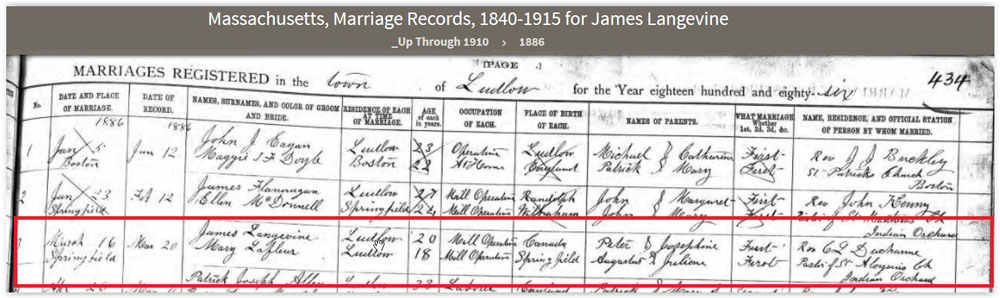 Massachusetts, Marriage Records, 1840-1915 for James Langevine
_Up Through 1910 › 1886
[PAGE ]
MARRIAGES REGISTERED in the town of Ludlow for the Year eighteen hundred and eighty-six 434
No. DATE AND PLACE OF MARRIAGE. DATE OF RECORD. NAMES, SURNAMES, AND COLOR OF GROOM AND BRIDE. RESIDENCE OF EACH AT TIME OF MARRIAGE. AGE of each in years. OCCUPATION OF EACH. PLACE OF BIRTH OF EACH. NAMES OF PARENTS. WHAT MARRIAGE Whether 1st, 2d, 3d, &c. NAME, RESIDENCE, AND OFFICIAL STATION OF PERSON BY WHOM MARRIED.
1886 1886
1 Jan 5 Jan 12 John J Eagan Ludlow 23 Operative Ludlow Michael & Catherine First Rev J J Buckley
Boston Maggie Doyle Boston 22 At Home England Patrick & Mary First St Patricks Church
Boston
2 Jan 23 Feb 12 James Flannagan Ludlow 27 Mill Operative Randolph John & Margaret First Rev John Kenny
Springfield Ellen McDonnell Springfield 24 Mill Operative Wilbraham John & Mary First
Indian Orchard
3 March 16 Mar 20 James Langevine Ludlow 20 Mill Operative Canada Peter & Josephine First Rev Ducharme
Springfield Mary LaFleur Ludlow 18 Mill Operative Springfield Augustus & Julienne First Pastor of St Aloysius Ch
Indian Orchard
Patrick Joseph Allen 23 Laborer